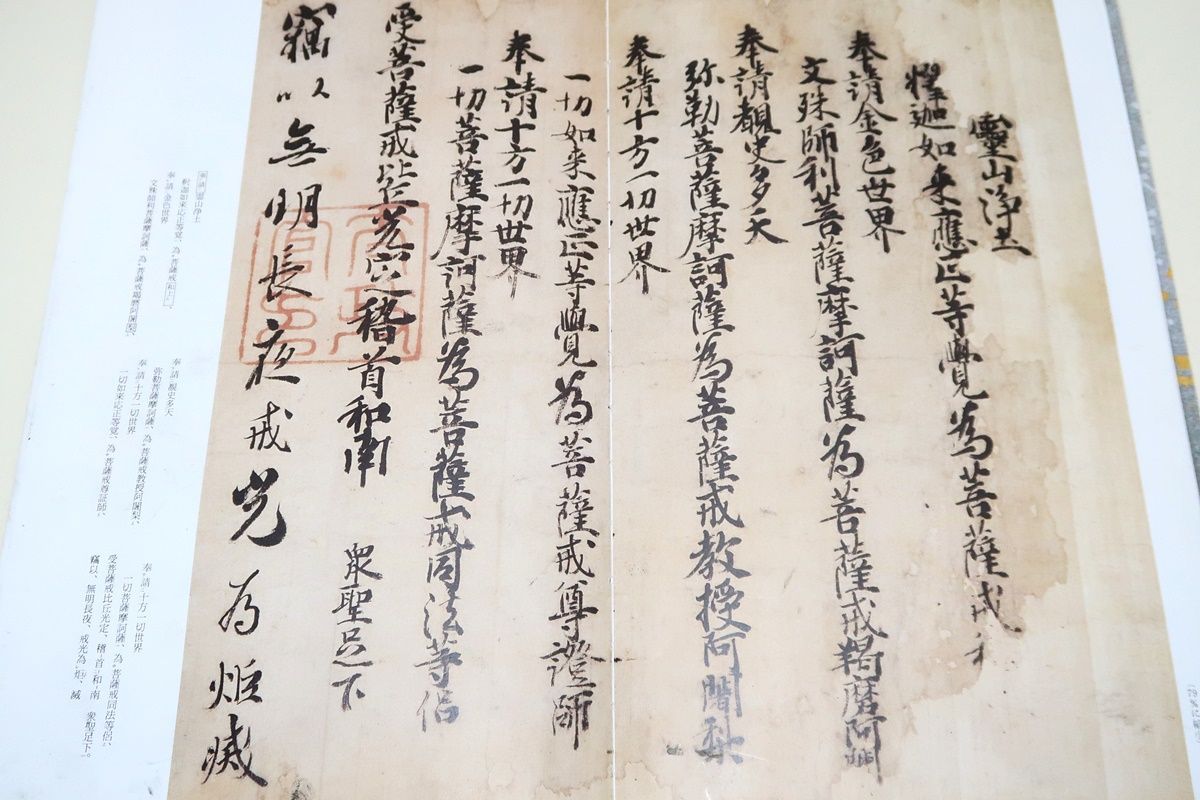 靈山淨土
釋迦如来應正等覺為菩薩戒和
奉請金色世界
文殊師利菩薩摩訶薩為菩薩戒羯磨阿闍
奉請覩史多天
弥勒菩薩摩訶薩為菩薩戒教授阿闍梨
奉請十方一切世界
一切如来應正等覺為菩薩戒尊證師
奉請十方一切世界
一切菩薩摩訶薩為菩薩戒同法等侶
受菩薩戒比丘光定稽首和南 衆聖足下
竊以無明長夜戒光為炬滅
奉請靈山浄土
釈迦如来応正等覚、為菩薩戒和上、
奉請金色世界
文殊師利菩薩摩訶薩、為菩薩戒羯磨阿闍梨、
奉請覩史多天
弥勒菩薩摩訶薩、為菩薩戒教授阿闍梨、
奉請十方一切世界
一切如来応正等覚、為菩薩戒尊証師、
奉請十方一切世界
一切菩薩摩訶薩、為菩薩戒同法等侶、
受菩薩戒比丘光定、稽首和南 衆聖足下。
竊以、無明長夜、戒光為炬、滅